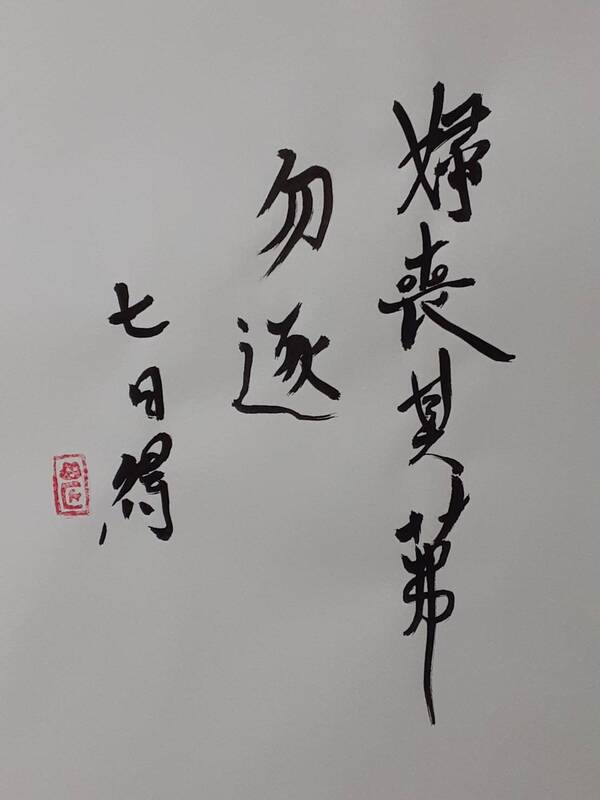 婦喪其茀
勿逐
七日得